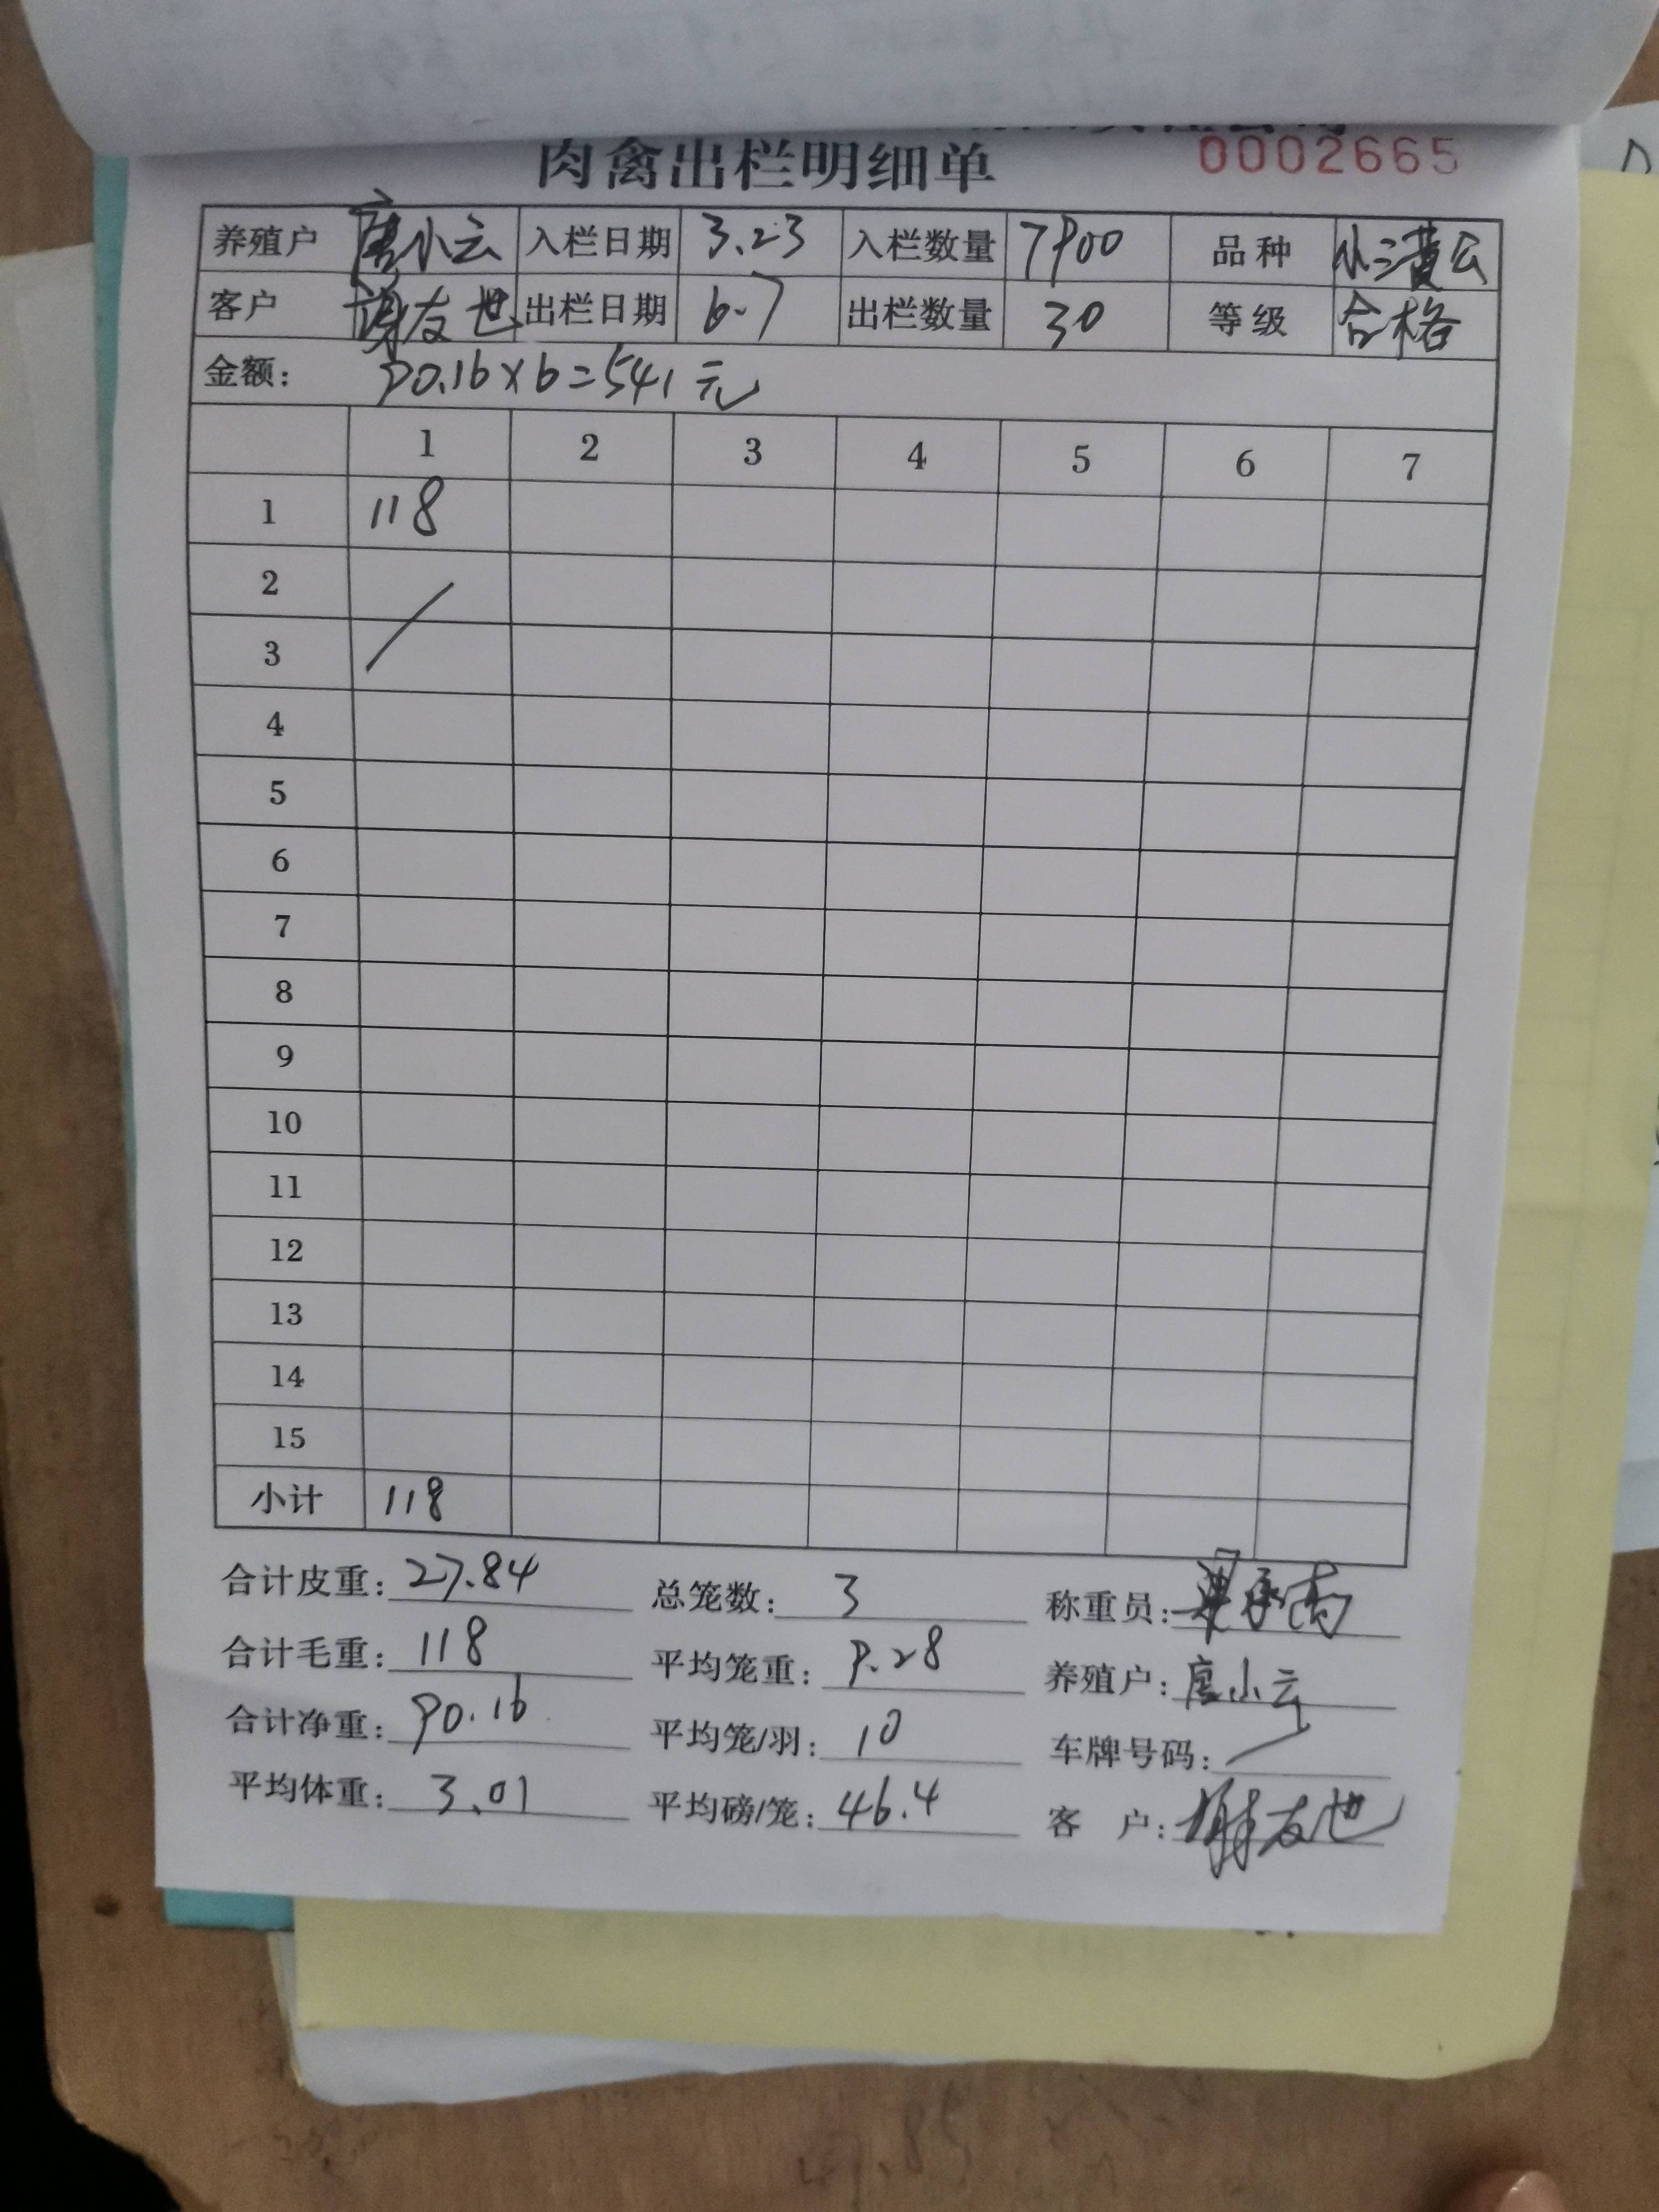 肉禽出栏明细单 0002665
养殖户 唐小云 入栏日期 3.23 入栏数量 7900 品种 小三黄公
客户 谢友世 出栏日期 6.7 出栏数量 30 等级 合格
金额: 90.16×6=541元
1 2 3 4 5 6 7
1 118
2
3
4
5
6
7
8
9
10
11
12
13
14
15
小计 118
合计皮重: 27.84 总笼数: 3 称重员:
合计毛重: 118 平均笼重: 9.28 养殖户: 唐小云
合计净重: 90.16 平均笼/羽: 10 车牌号码:
平均体重: 3.01 平均磅/笼: 46.4 客 户: 谢友世